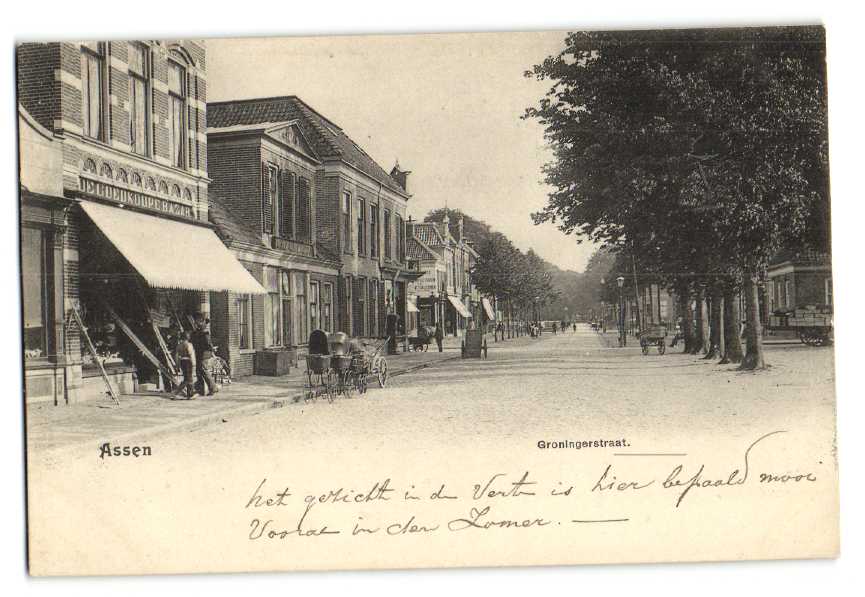 DE GOEDKOOPE BAZAR
Assen
Groningerstraat.
het gezicht in de Verte is hier bepaald mooi
Vooral in den Zomer. —